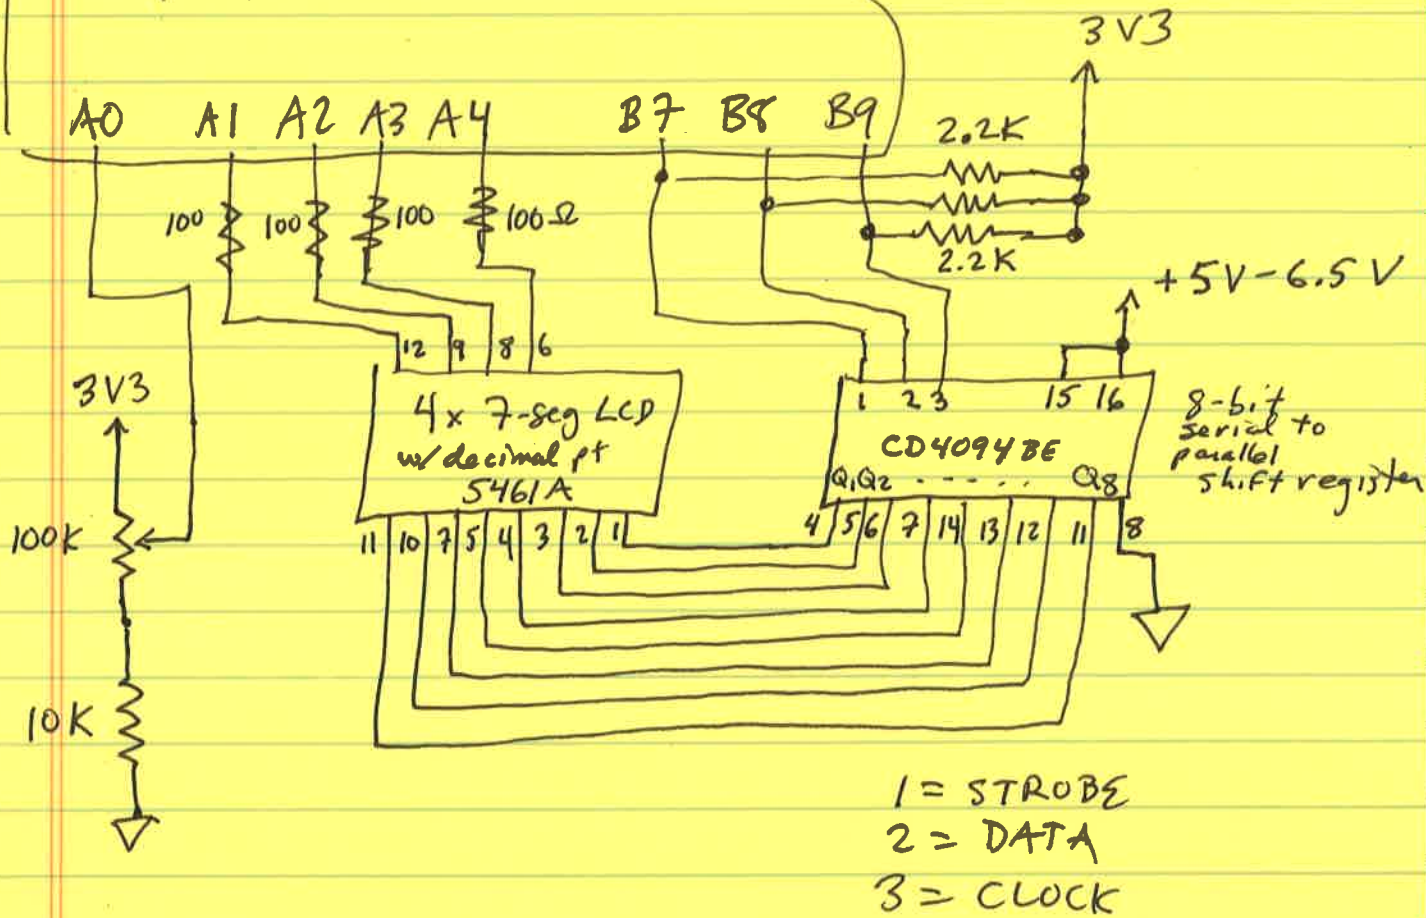 3V3
A0 A1 A2 A3 A4 B7 B8 B9
2.2K
100 100 100 100Ω
2.2K
+5V-6.5V
12 9 8 6
3V3
1 2 3 15 16
4x 7-seg LCD
w/decimal pt
5461A
CD4094BE
Q1 Q2 - - - . . Q8
8-bit
serial to
parallel
shift register
100K
11 10 7 5 4 3 2 1
4 5 6 7 14 13 12 11 8
10K
1 = STROBE
2 = DATA
3 = CLOCK